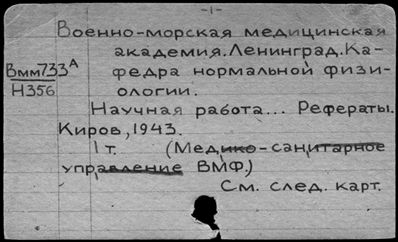 -1-
Военно-морская медицинская
академия. Ленинград. Ка-
Вмм733А
федра нормальной физи-
Н356
ологии.
Научная работа... Рефераты.
Киров, 1943.
1 т. (Медико-санитарное
управление ВМФ.)
См. след. карт.